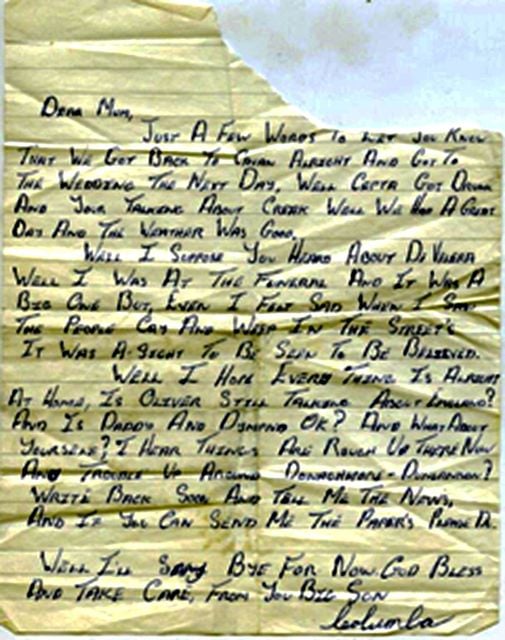 Dear Mum,
Just A Few Words To Let You Know
That We Got Back To Cavan Alright And Got To
The Wedding The Next Day, Well Cepta Got Drunk
And Your Talking About Creek Well We Had A Great
Day And The Weather Was Good,
Well I Suppose You Heard About De Velera
Well I Was At The Funeral And It Was A
Big One But, Even I Felt Sad When I Saw
The People Cry And Weep In The Street's
It Was A-Sight To Be Seen To Be Believed.
Well I Hope Every Thing Is Alright
At Home, Is Oliver Still Talking About England?
And Is Daddy And Dympna OK? And What About
Yourself? I Hear Things Are Rough Up There Now
And Trouble Up Around Donaghmore - Dungannon?
Write Back Soon And Tell Me The News,
And If You Can Send Me The Paper's Please
Well I'll Say Bye For Now. God Bless
And Take Care, From You Big Son
Columba